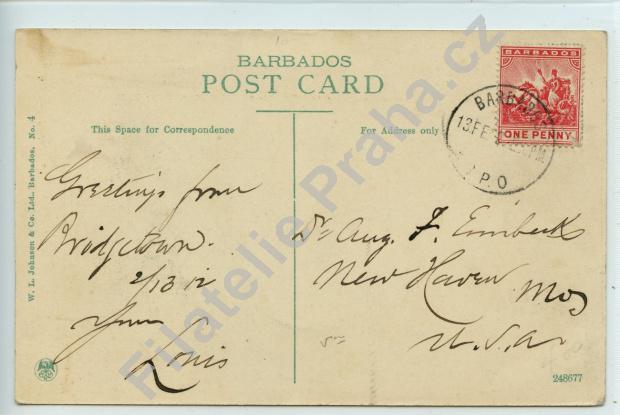 BARBADOS
POST CARD
This Space for Correspondence
For Address only
BARBADOS
ONE PENNY
BARBADOS
13 FE
PM
G.P.O
Greetings from
Bridgetown.
2/13 12
Yours
Louis
Dr Aug. F. Eimbeck
New Haven Mos
U.S.A.
W. L. Johnson & Co. Ltd., Barbados, No. 4
248677
Filatelie Praha.cz